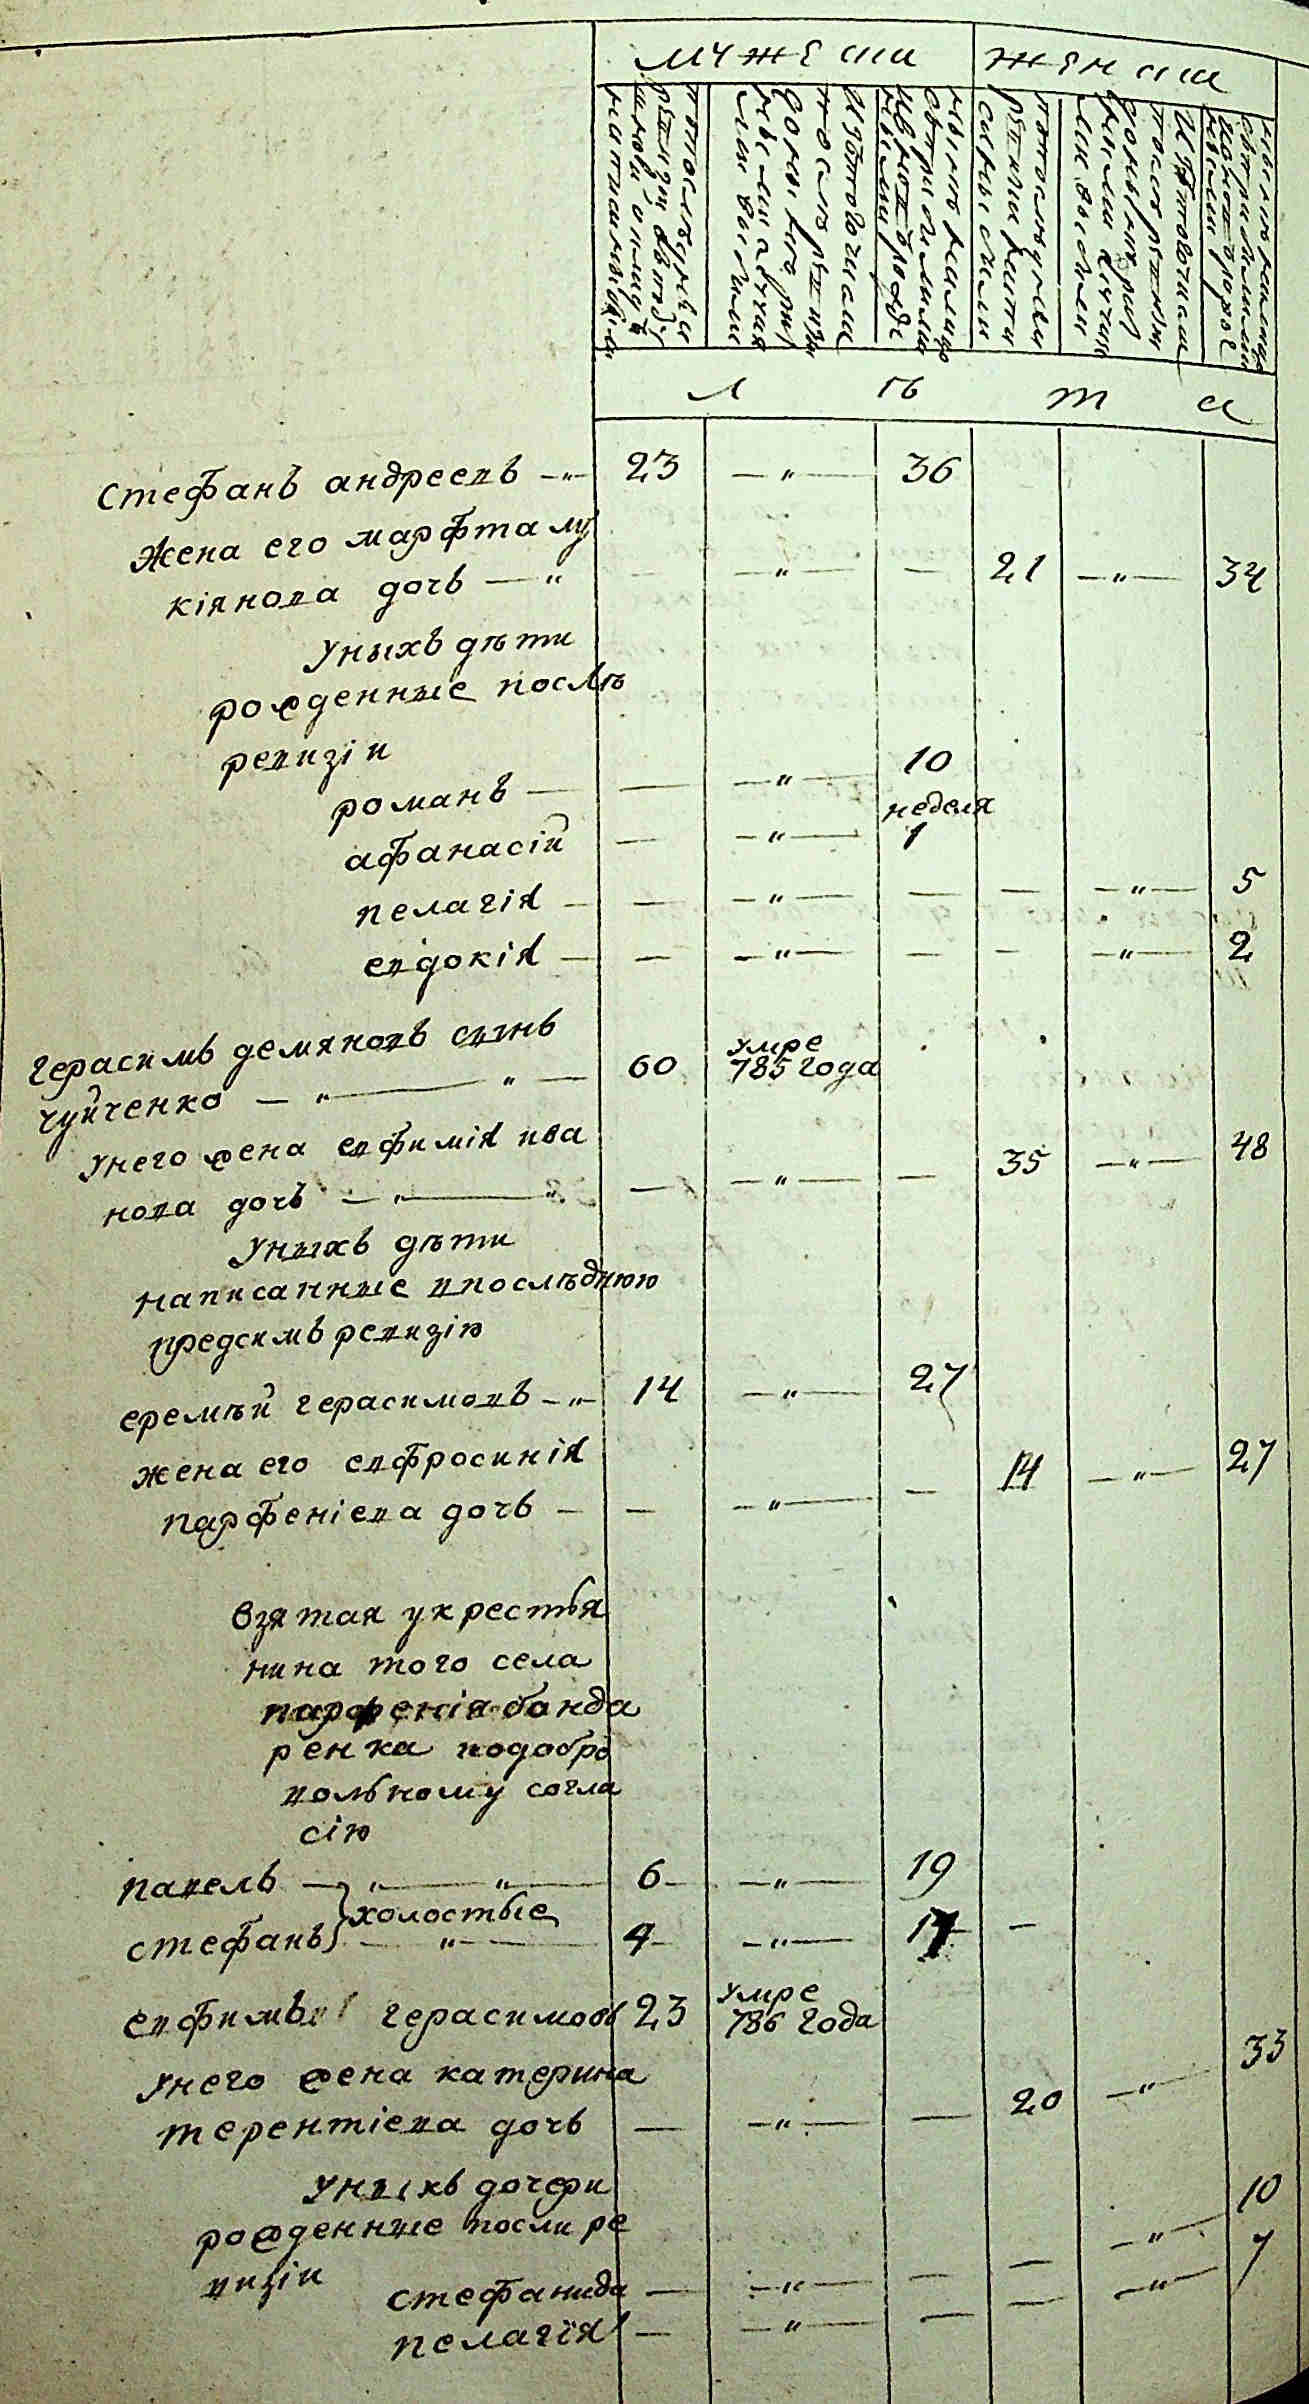 мужеска женска
л ѣ т а
Стефанъ андреевъ —"— 23 —"— 36
Жена его марфта лу
кіянова дочь —" — —"— — 21 —"— 34
Уныхъ дѣти
рожденные послѣ
ревизіи
романъ — — —"— 10
неделя
афанасій — —"— 1
пелагія — — —"— — — —"— 5
евдокія — — —"— — — —"— 2
герасимъ демяновъ сынъ
чуйченко — "— " — 60 умре 785 года
Унего жена евфимія ива
нова дочь — "— " — —"— — 35 —"— 48
Уныхъ дѣти
написанные впослѣднюю
предсимъ ревизію
еремѣй герасимовъ —"— 14 —"— 27
жена его евфросинія
парфеніева дочь — — —"— — 14 —"— 27
Взятая укрестья
нина того села
парфенія банда
ренка подобро
вольному согла
сію
павелъ — "— "— 6 —"— 19
холостые
стефанъ — "— 4 —"— 17 —
евфимъ герасимовъ 23 умре 786 года
Унего жена катерина
терентіева дочь — —"— — 20 —"— 33
Уныхъ дочери
рожденные посли ре
визіи
стефанида — —"— — — —"— 10
пелагія — —"— — — —"— 7